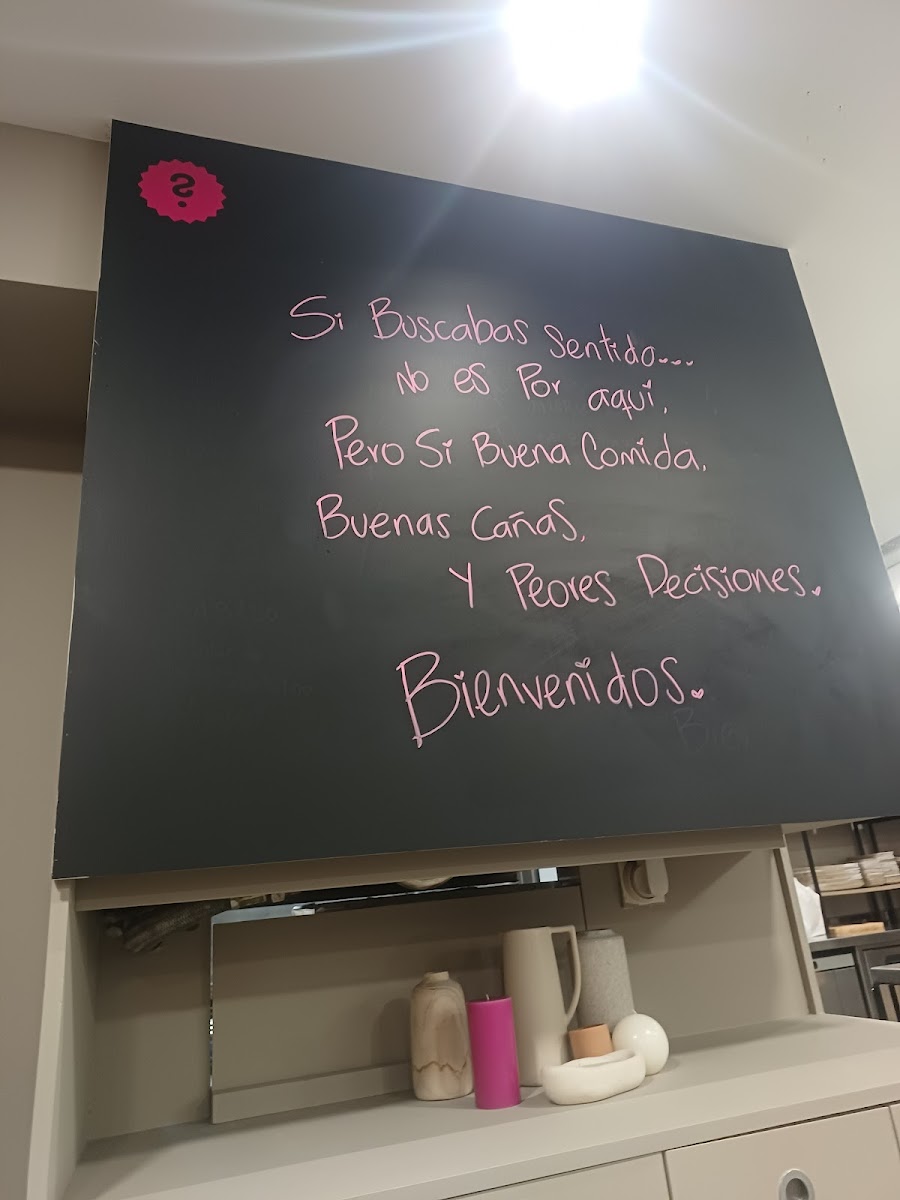 ?
Si Buscabas Sentido...
No es Por aquí,
Pero Si Buena Comida,
Buenas Cañas,
Y Peores Decisiones.
Bienvenidos.